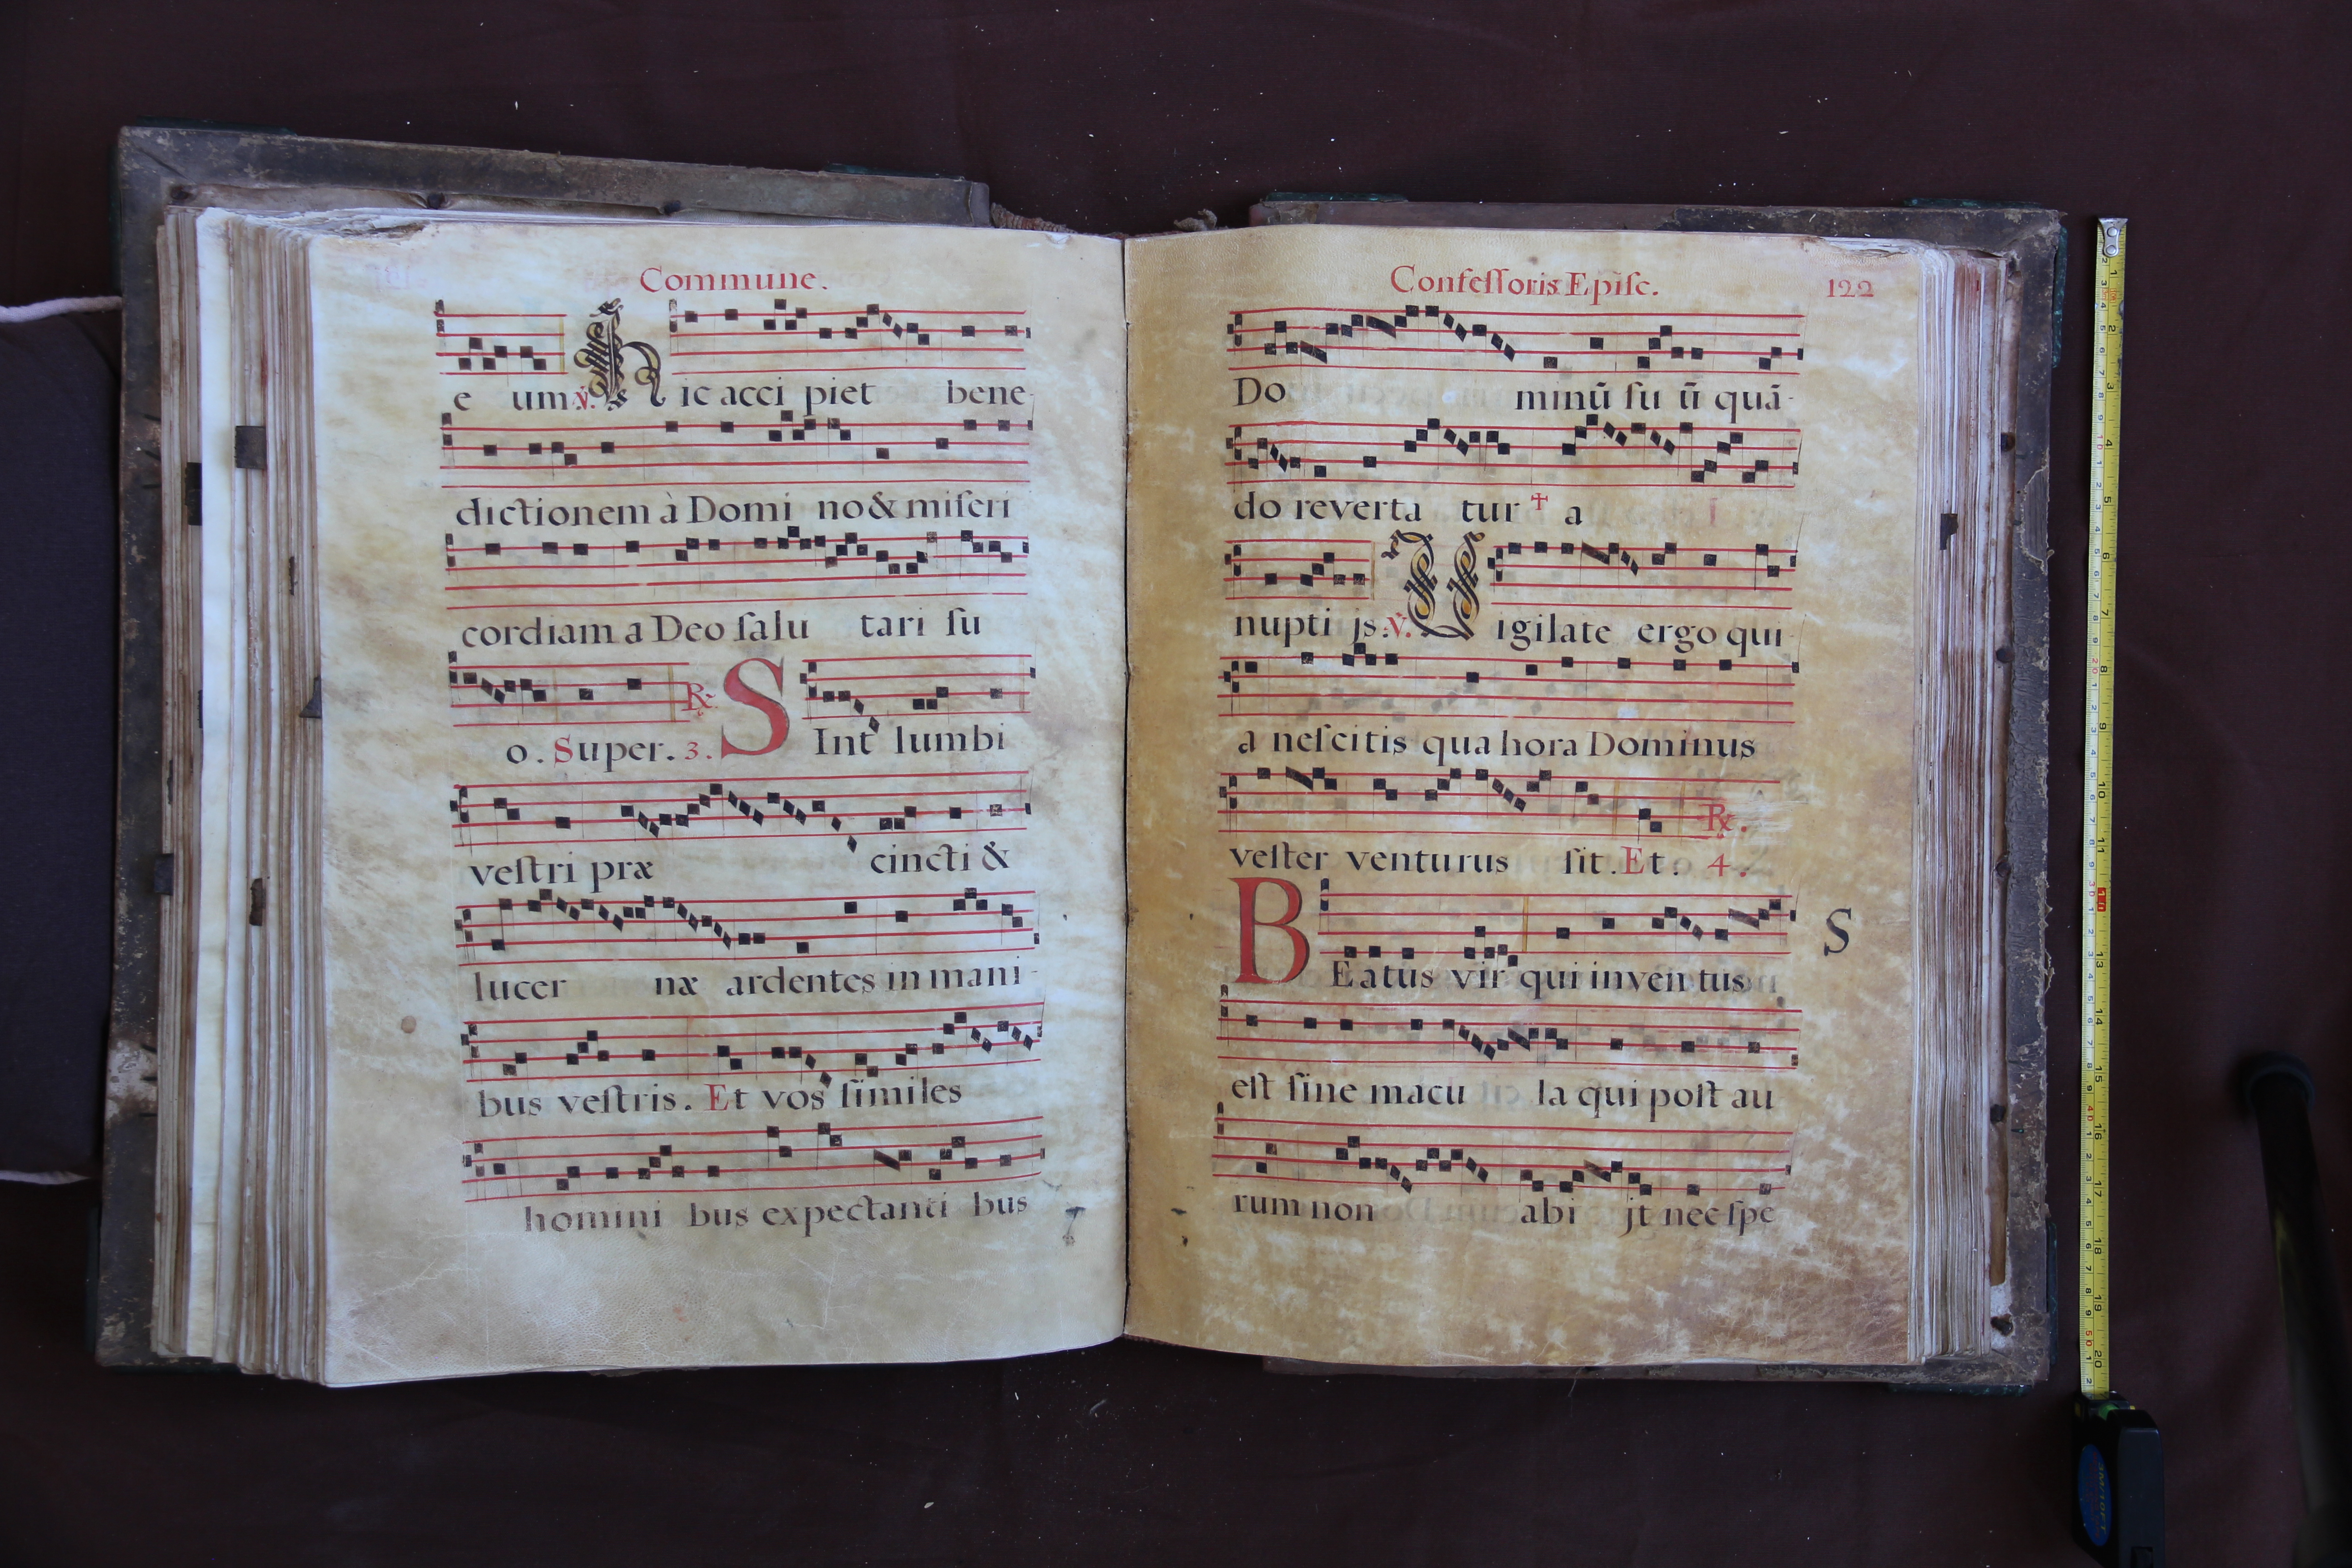 Commune.
e um. ℣. Hic acci piet bene-
dictionem à Domi no & miſeri
cordiam a Deo ſalu tari ſu
o. Super. 3. ℟. SInt lumbi
veſtri præ cincti &
lucer næ ardentes in mani-
bus veſtris. Et vos ſimiles
homini bus expectanti bus
Confeſſoris Epiſc. 122
Do minū ſu ū quā-
do reverta tur † a
nupti js. ℣. Vigilate ergo qui-
a neſcitis qua hora Dominus
veſter venturus ſit. Et. 4. ℟.
BEatus vir qui inven tus
S
eſt ſine macu la qui poſt au
rum non abi jt nec ſpe